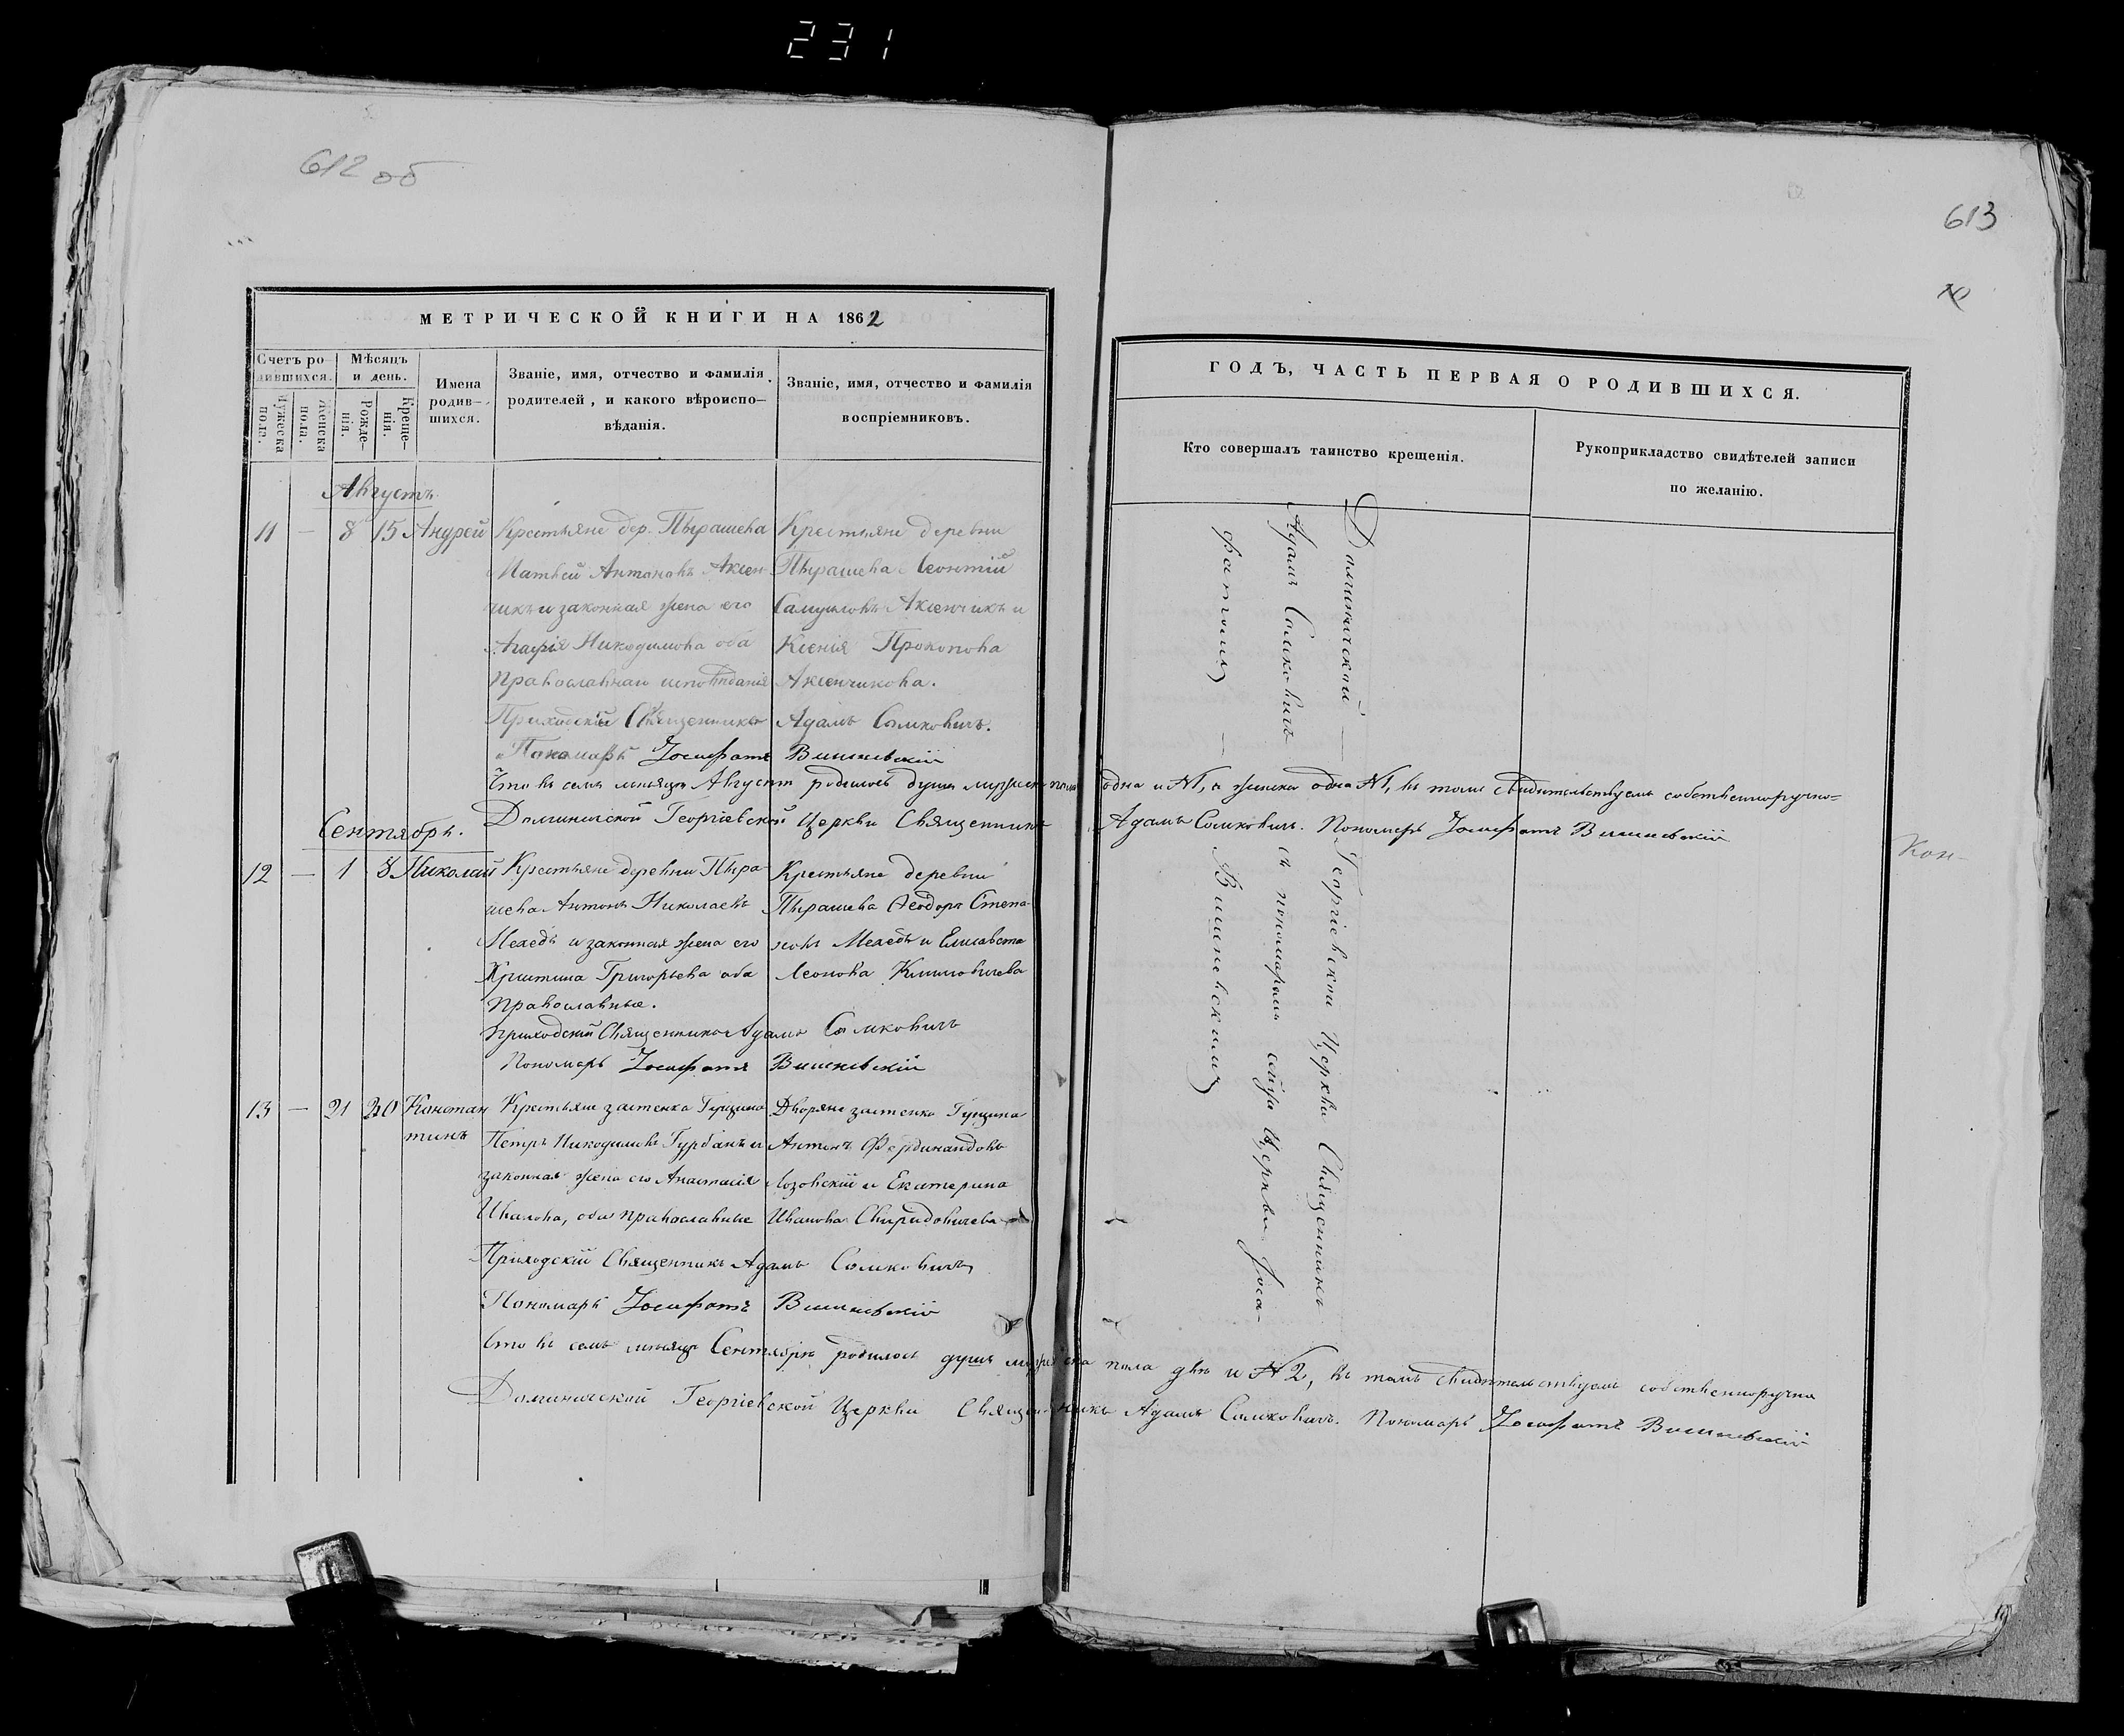 231
612 об
613
МЕТРИЧЕСКОЙ КНИГИ НА 1862
Счетъ ро-
дившихся.
Мужеска
пола.
Женска
пола.
Мѣсяцъ
и день.
Рожде-
нія.
Креще-
нія.
Имена
родив-
шихся.
Званіе, имя, отчество и фамилія
родителей, и какого вѣроиспо-
вѣданія.
Званіе, имя, отчество и фамилія
воспріемниковъ.
ГОДЪ, ЧАСТЬ ПЕРВАЯ О РОДИВШИХСЯ.
Кто совершалъ таинство крещенія.
Рукоприкладство свидѣтелей записи
по желанію.
Августъ
11 — 8 15 Андрей
Крестьяне дер. Пырашева
Матѳей Антоновъ Аксен-
чикъ и законная жена его
Агафія Никодимова оба
православнаго исповѣданія
Крестьяне деревни
Пырашева Леонтій
Самуиловъ Аксенчикъ и
Ксенія Прокопова
Аксенчикова.
Приходскій Священникъ Адамъ Сомковичъ.
Пономарь Іосифатъ Вишневскій
Что въ семъ мѣсяцѣ Августѣ родилось душъ мужеска пола одна и №1, а женска одна №1, въ томъ свидѣтельствуемъ собственноручно=
Георгіевской Церкви Священникъ Адамъ Сомковичъ. Пономарь Іосифатъ Вишневскій
Сентябрь.
12 — 1 8 Николай
Крестьяне деревни Пыра-
шева Антонъ Николаевъ
Мехедъ и законная жена его
Христина Григорьева оба
православные.
Крестьяне деревни
Пырашева Ѳеодоръ Степа-
новъ Мехедъ и Елисавета
Леонова Климовичева
Приходскій Священникъ Адамъ Сомковичъ
Пономарь Іосифатъ Вишневскій
13 — 21 30 Констан
тинъ
Крестьяне застенка
Петръ Никодимовъ Гурбанъ и
законная жена его Анастасія
Иванова, оба православные
Дворяне застенка
Антонъ Фердинандовъ
Лозовскій и Екатерина
Иванова Свиридовичева
Приходскій Священникъ Адамъ Сомковичъ
Пономарь Іосифатъ Вишневскій
Что въ семъ мѣсяцѣ Сентябрѣ родилось душъ мужеска пола двѣ и №2, въ томъ свидѣтельствуемъ собственноручно
Георгіевской Церкви Священникъ Адамъ Сомковичъ. Пономарь Іосифатъ Вишневскій
Георгіевской Церкви Священникъ
Адамъ Сомковичъ съ пономаремъ сейже Церкви Іоса-
фатомъ Вишневскимъ
Кон-